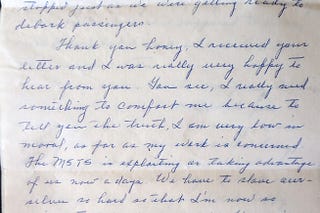 stopped just as we were getting ready to
debark passengers.
Thank you honey, I received your
letter and I was really very happy to
hear from you. You see, I really need
something to comfort me because to
tell you the truth, I am very low in
moral, as far as my work is concerned.
The MSTS is exploiting or taking advantage
of us now a days. We have to slave our-
selves so hard so that I'm now so